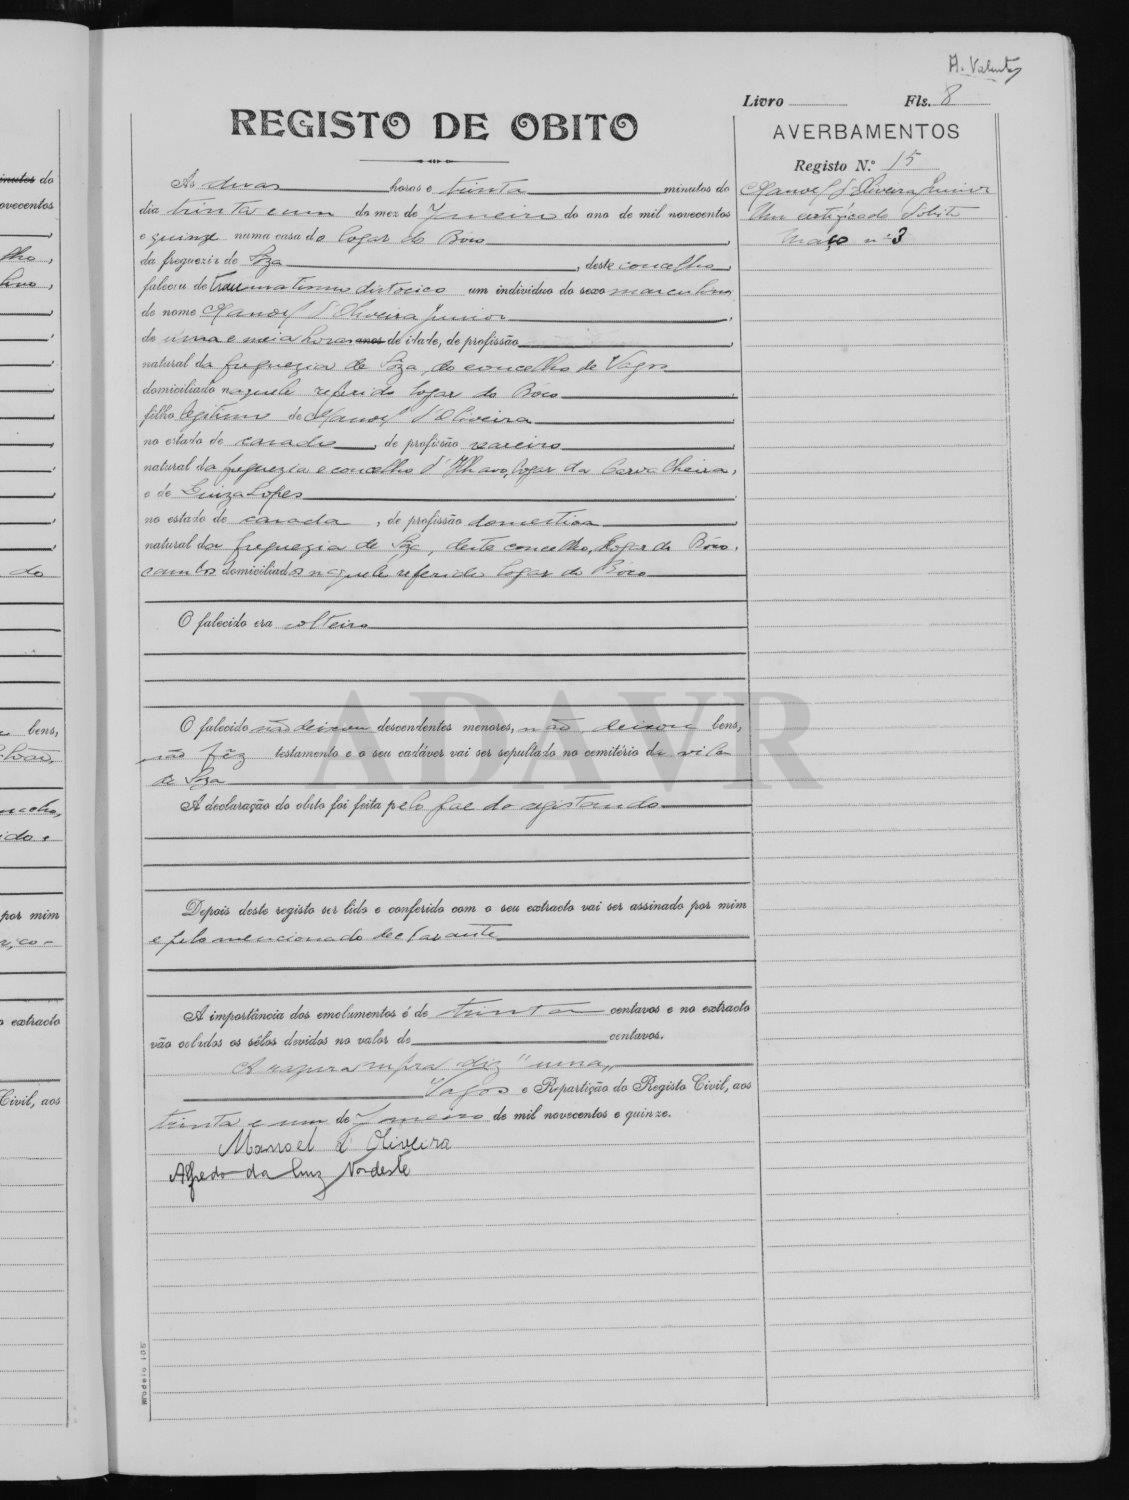 A. Valente
Livro Fls. 8
REGISTO DE OBITO
AVERBAMENTOS
Registo N.º 15
Às duas horas e trinta minutos do
dia trinta e um do mez de Janeiro do ano de mil novecentos
e quinze numa casa do logar do Bôco,
da freguezia de Soza, deste concelho,
faleceu de traumatismo distocico um individuo do sexo masculino
de nome Manoel d'Oliveira Junior,
de uma e meia horas anos de idade, de profissão
natural da freguezia de Soza, do concelho de Vagos
domiciliado naquele referido logar do Bôco
filho legitimo de Manoel d'Oliveira
no estado de casado, de profissão
natural da freguezia e concelho d'Ilhavo, logar da Carvalheira,
e de Luiza Lopes
no estado de casada, de profissão domestica,
natural da freguezia de Soza, deste concelho, logar do Bôco,
e ambos domiciliados naquele referido logar do Bôco
O falecido era solteiro
O falecido não deixou descendentes menores, não deixou bens,
não fêz testamento e o seu cadáver vai ser sepultado no cemitério da vila
de Soza
A declaração do obito foi feita pelo pae do registando
Depois deste registo ser lido e conferido com o seu extracto vai ser assinado por mim
e pelo mencionado declarante
A importância dos emolumentos é de trinta centavos e no extracto
vão colados os sêlos devidos no valor de centavos.
A rasura supra diz "uma"
Vagos e Repartição do Registo Civil, aos
trinta e um de Janeiro de mil novecentos e quinze.
Manoel d'Oliveira
Alfredo da Cruz Nordeste
Manoel d'Oliveira Junior
Um certificado d'obito
Maço nº 3
ADAVR
Modelo 105
minutos do
novecentos
bens,
por mim
o extracto
Civil, aos